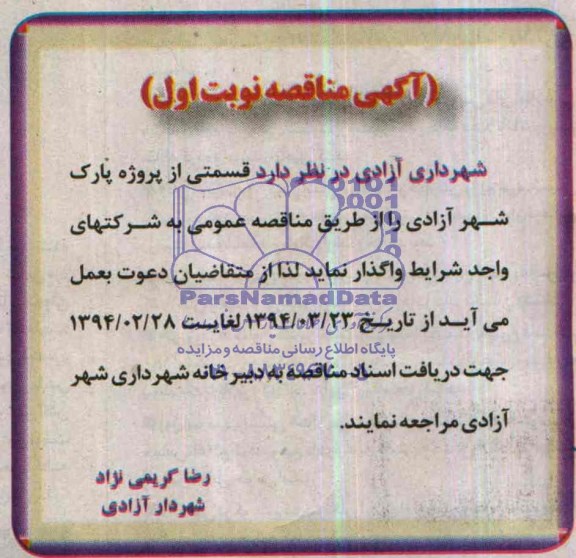 (آگهی مناقصه نوبت اول)
شهرداری آزادی در نظر دارد قسمتی از پروژه پارک
شهر آزادی را از طریق مناقصه عمومی به شرکتهای
واجد شرایط واگذار نماید لذا از متقاضیان دعوت بعمل
می آید از تاریخ ۱۳۹۴/۰۳/۲۳ لغایت ۱۳۹۴/۰۲/۲۸
جهت دریافت اسناد مناقصه به دبیرخانه شهرداری شهر
آزادی مراجعه نمایند.
رضا کریمی نژاد
شهردار آزادی
ParsNamadData
پایگاه اطلاع رسانی مناقصه و مزایده